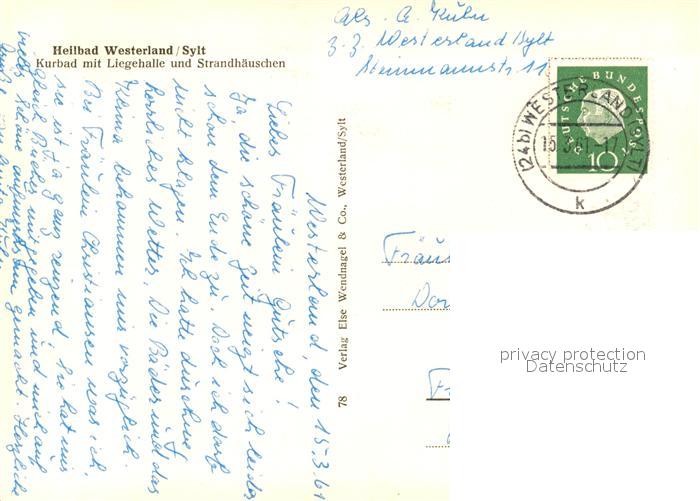 Heilbad Westerland/Sylt
Kurbad mit Liegehalle und Strandhäuschen
Abs. A. Kühn
z. Z. Westerland Sylt
Steinmannstr. 11
DEUTSCHE BUNDESPOST
10
(24b) WESTERLAND (SYLT)
15.3.61-17
k
Westerland, den 15.3.61
Liebes Fräulein Gutsche!
Ja die schöne Zeit neigt sich leider
schon dem Ende zu. Doch ich darf
nicht klagen. Ich hatte durchweg
herrliches Wetter. Die Bäder und das
Klima bekommen mir vorzüglich.
Bei Fräulein Christiansen war ich,
sie ist ja ganz reizend. Sie hat mir
gleich Bücher mitgegeben und mich auf
vieles Schöne aufmerksam gemacht. Herzliche
78 Verlag Else Wendnagel & Co., Westerland/Sylt
Fräu
Dor
privacy protection
Datenschutz